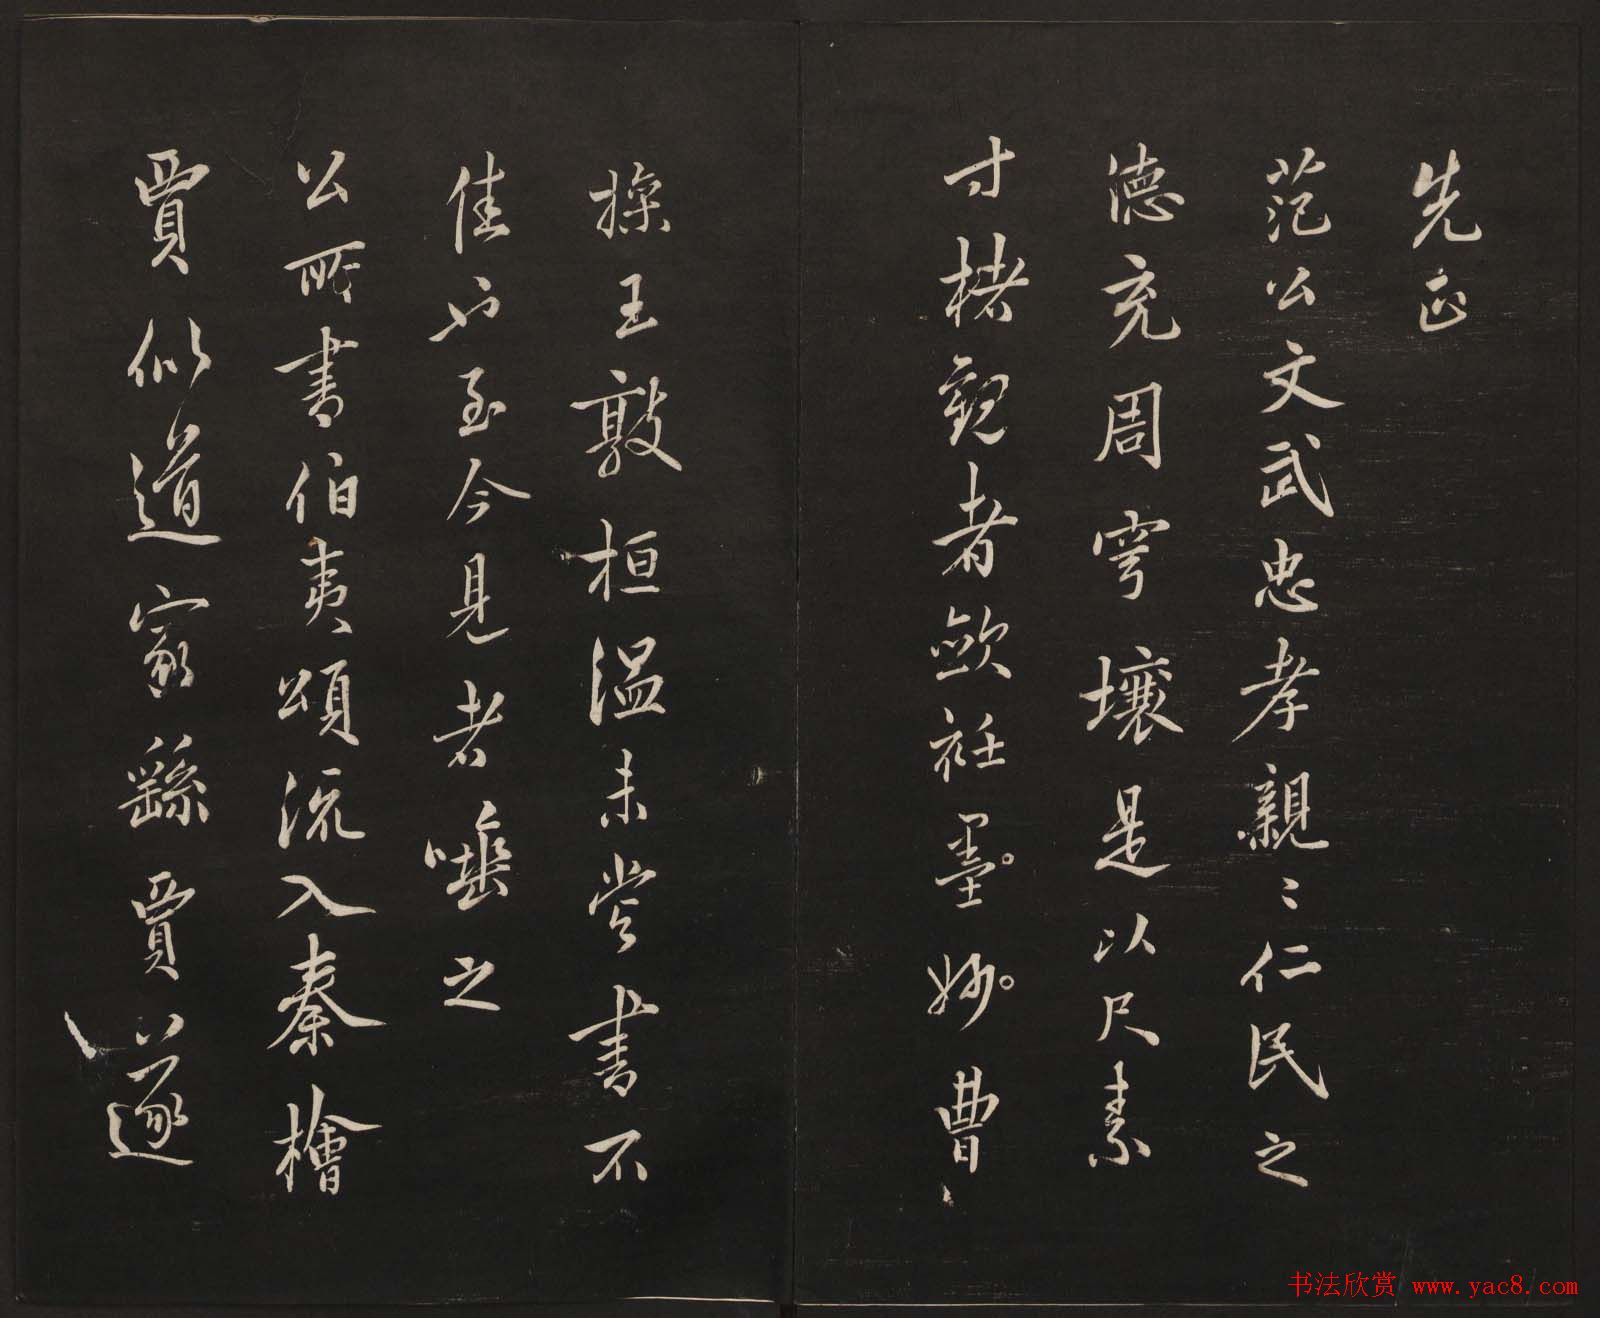 先正
范公文武忠孝親〻仁民之
德充周穹壤是以尺素
寸楮觀者斂衽墨妙曹
操王敦桓温未嘗書不
佳也至今見者唾之
公所書伯夷頌流入秦檜
賈似道家繇賈遂
书法欣赏 www.yac8.com